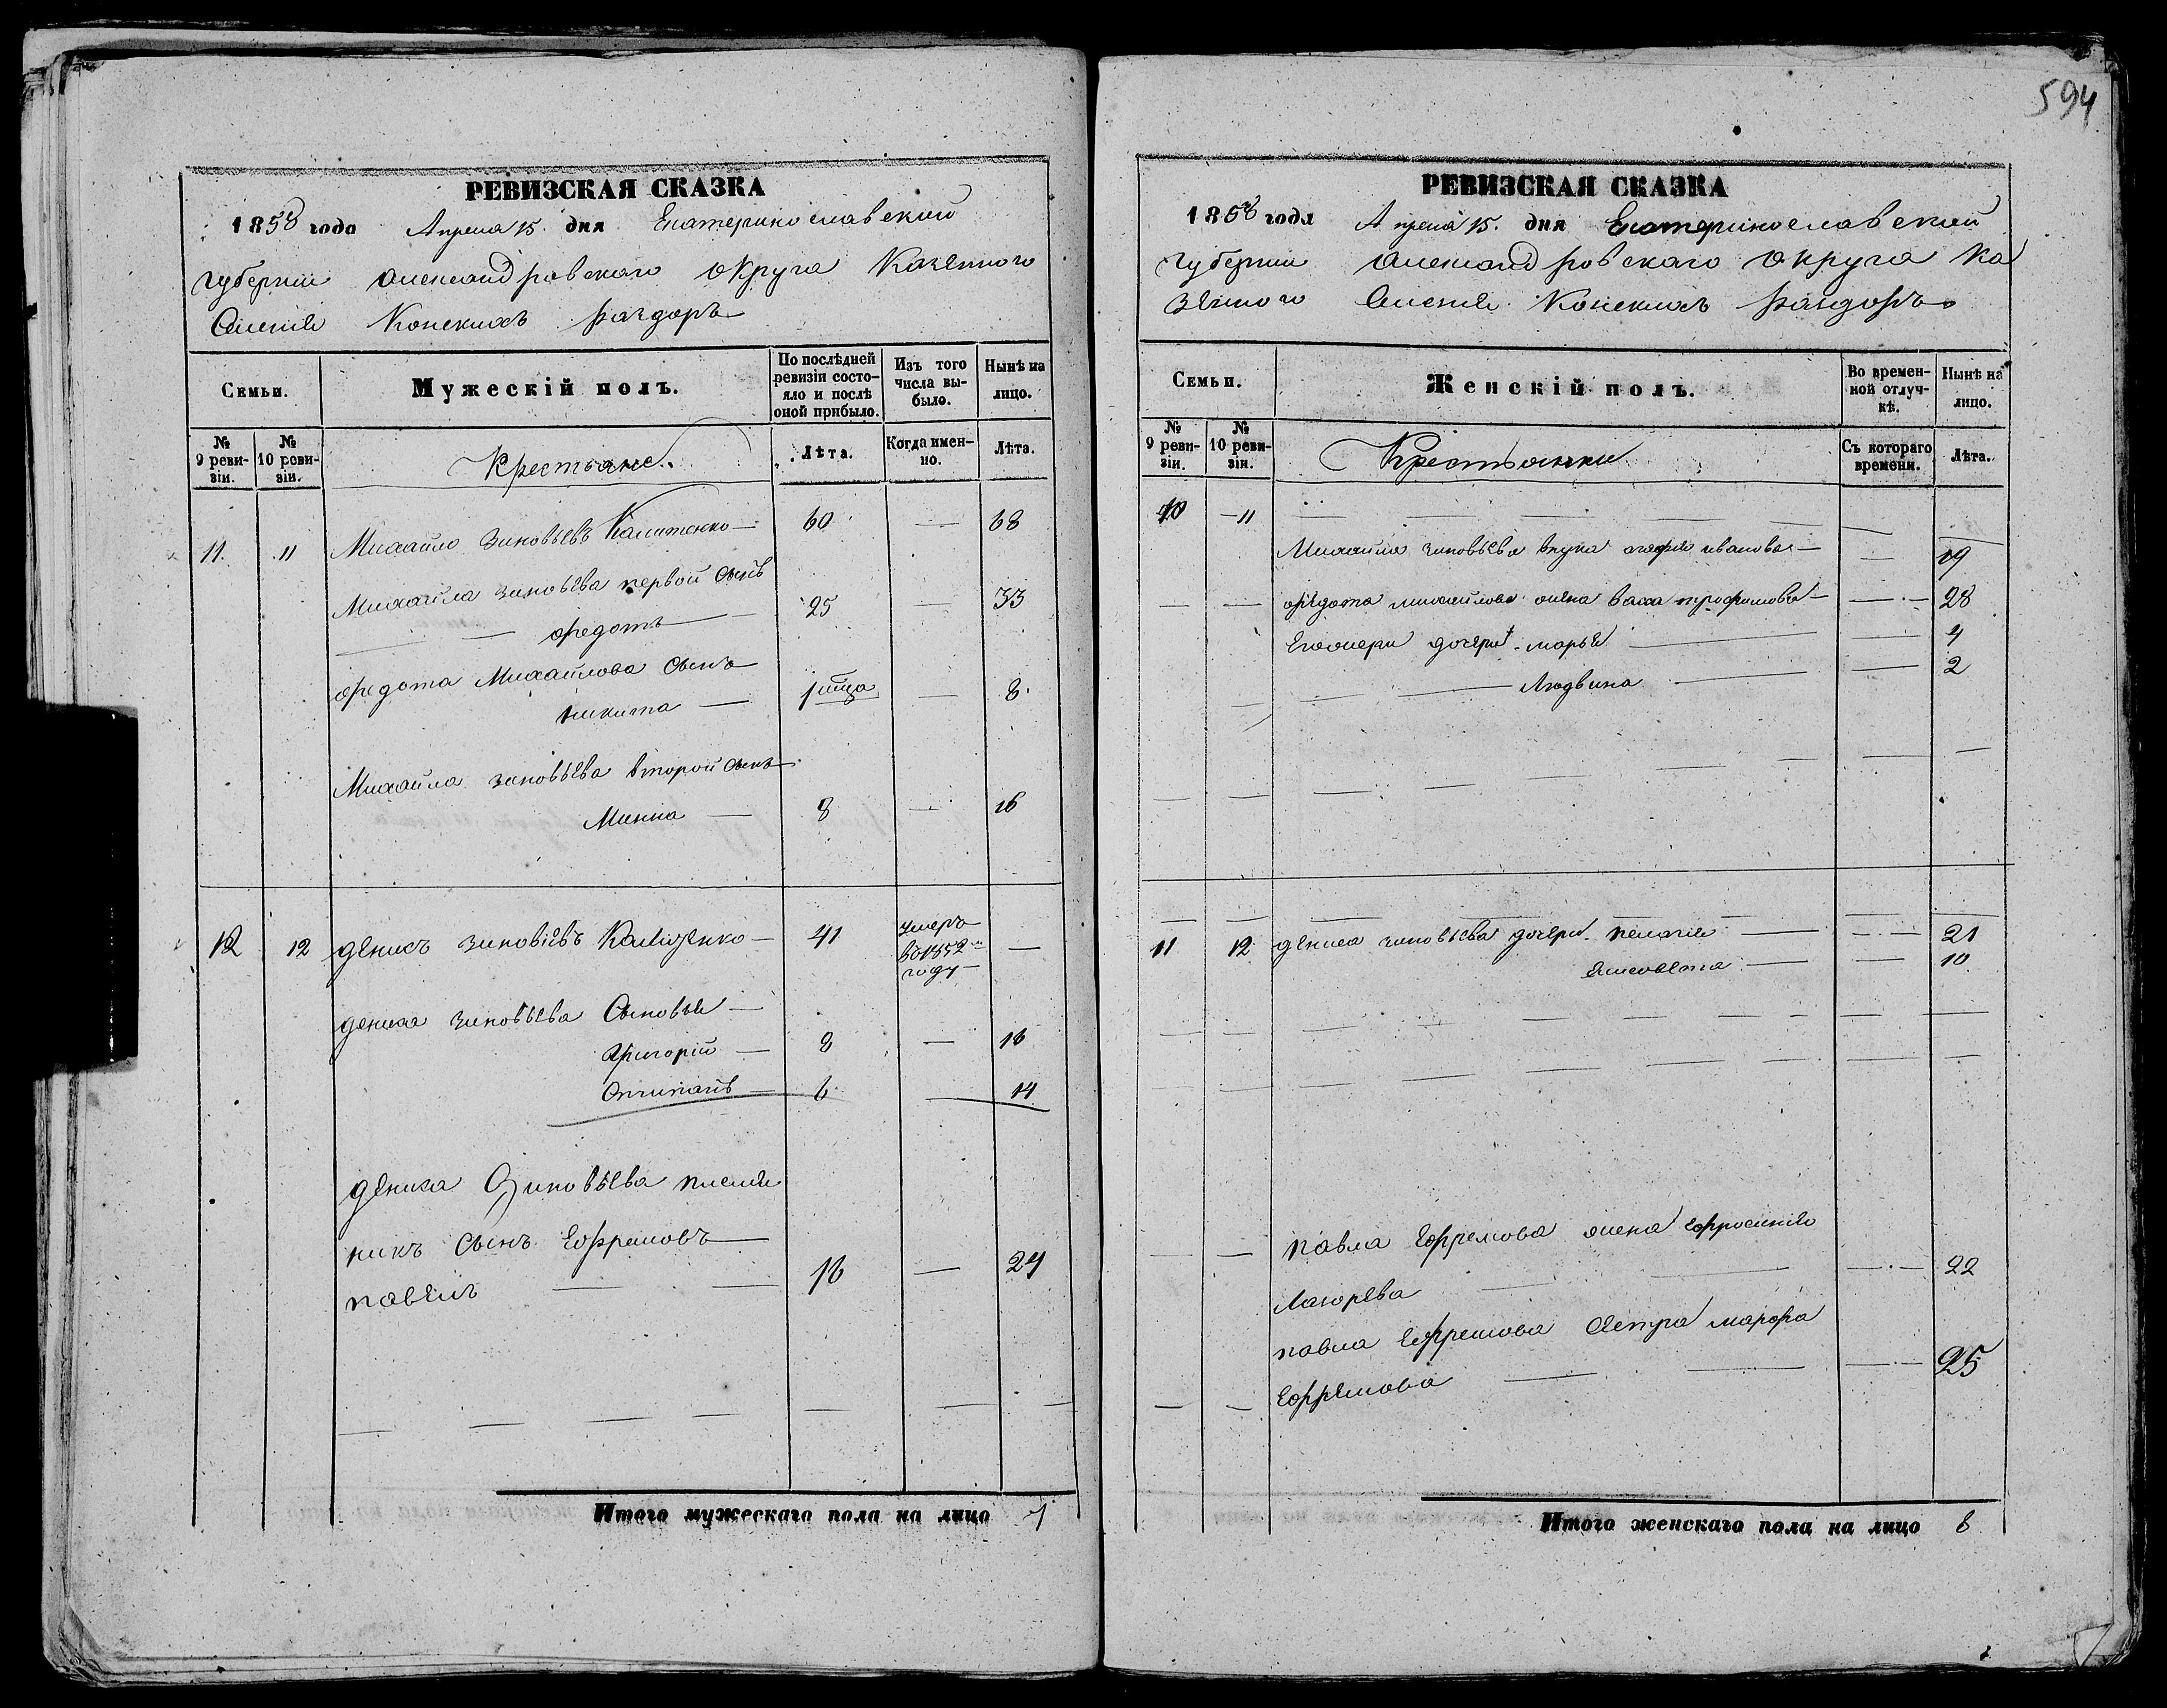 594
РЕВИЗСКАЯ СКАЗКА
1858 года Апреля 15. дня Екатеринославской
губернии Александровскаго округа Казенного
Селенія Конскихъ Раздоръ
Семьи.
Мужескій полъ.
По послѣдней ревизіи состояло и послѣ оной прибыло.
Изъ того числа выбыло.
Нынѣ на лицо.
№ 9 ревизіи.
№ 10 ревизіи.
Крестьяне.
Лѣта.
Когда именно.
Лѣта.
11. 11 Михайло Зиновьевъ Калитенко — 60 — 68
Михайла Зиновьева первой сынъ
— федотъ — 25 — 33
федота Михайлова сынъ
никита — 1 — 8
Михайла Зиновьева второй сынъ
Минна — 8 — 16
12 12 денисъ Зиновіевъ — 41 умеръ —
в 1852м
году —
дениса Зиновьева Сыновья —
Григорій — 8 — 16
6 — 14
дениса Зиновьева племян
никъ сынъ Ефремовъ —
павелъ — — 16 — 24
Итого мужескаго пола на лицо 7
РЕВИЗСКАЯ СКАЗКА
1858 года Апреля 15. дня Екатеринославской
губернии Александровскаго округа Ка
зенного Селенія Конскихъ Раздоръ
Семьи.
Женскій полъ.
Во временной отлучкѣ.
Нынѣ на лицо.
№ 9 ревизіи.
№ 10 ревизіи.
Крестьянки
Съ котораго времени.
Лѣта.
10 — 11
Михайла Зиновьева внука ивановна — — 19
— — федота михайлова жена васса трофимова — — 28
его дочери марья — — 4
— — Людвина — — 2
11 12 дениса Зиновьева дочери пелагія — — 21
Елисавета — — 10
— — павла Ефремова жена Ефросинія
Лазорева — — 22
павла Ефремова сестра марфа
— — Ефремова — — 25
Итого женскаго пола на лицо 8